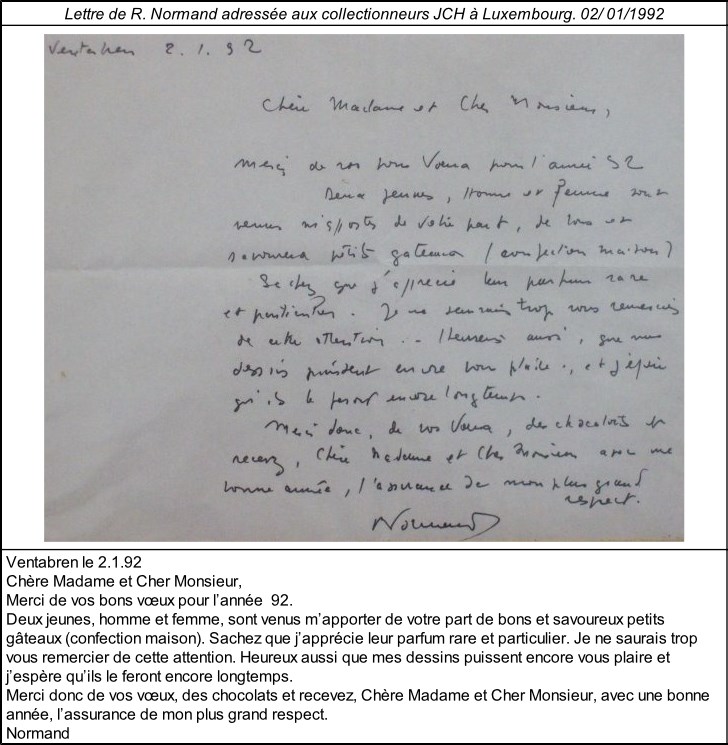 Lettre de R. Normand adressée aux collectionneurs JCH à Luxembourg. 02/ 01/1992
Ventabren 2. 1. 92
Chère Madame et Cher Monsieur,
Merci de vos bons Vœux pour l'année 92
Deux jeunes, Homme et Femme sont
venus m'apporter de votre part, de bons et
savoureux petits gateaux (confection maison)
Sachez que j'apprécie leur parfum rare
et particulier. Je ne saurais trop vous remercier
de cette attention... Heureux aussi, que mes
dessins puissent encore vous plaire, et j'espère
qu'ils le feront encore longtemps.
Merci donc, de vos Vœux, des chocolats et
recevez, Chère Madame et Cher Monsieur avec une
bonne année, l'assurance de mon plus grand
respect.
Normand
Ventabren le 2.1.92
Chère Madame et Cher Monsieur,
Merci de vos bons vœux pour l'année  92.
Deux jeunes, homme et femme, sont venus m'apporter de votre part de bons et savoureux petits
gâteaux (confection maison). Sachez que j'apprécie leur parfum rare et particulier. Je ne saurais trop
vous remercier de cette attention. Heureux aussi que mes dessins puissent encore vous plaire et
j'espère qu'ils le feront encore longtemps.
Merci donc de vos vœux, des chocolats et recevez, Chère Madame et Cher Monsieur, avec une bonne
année, l'assurance de mon plus grand respect.
Normand